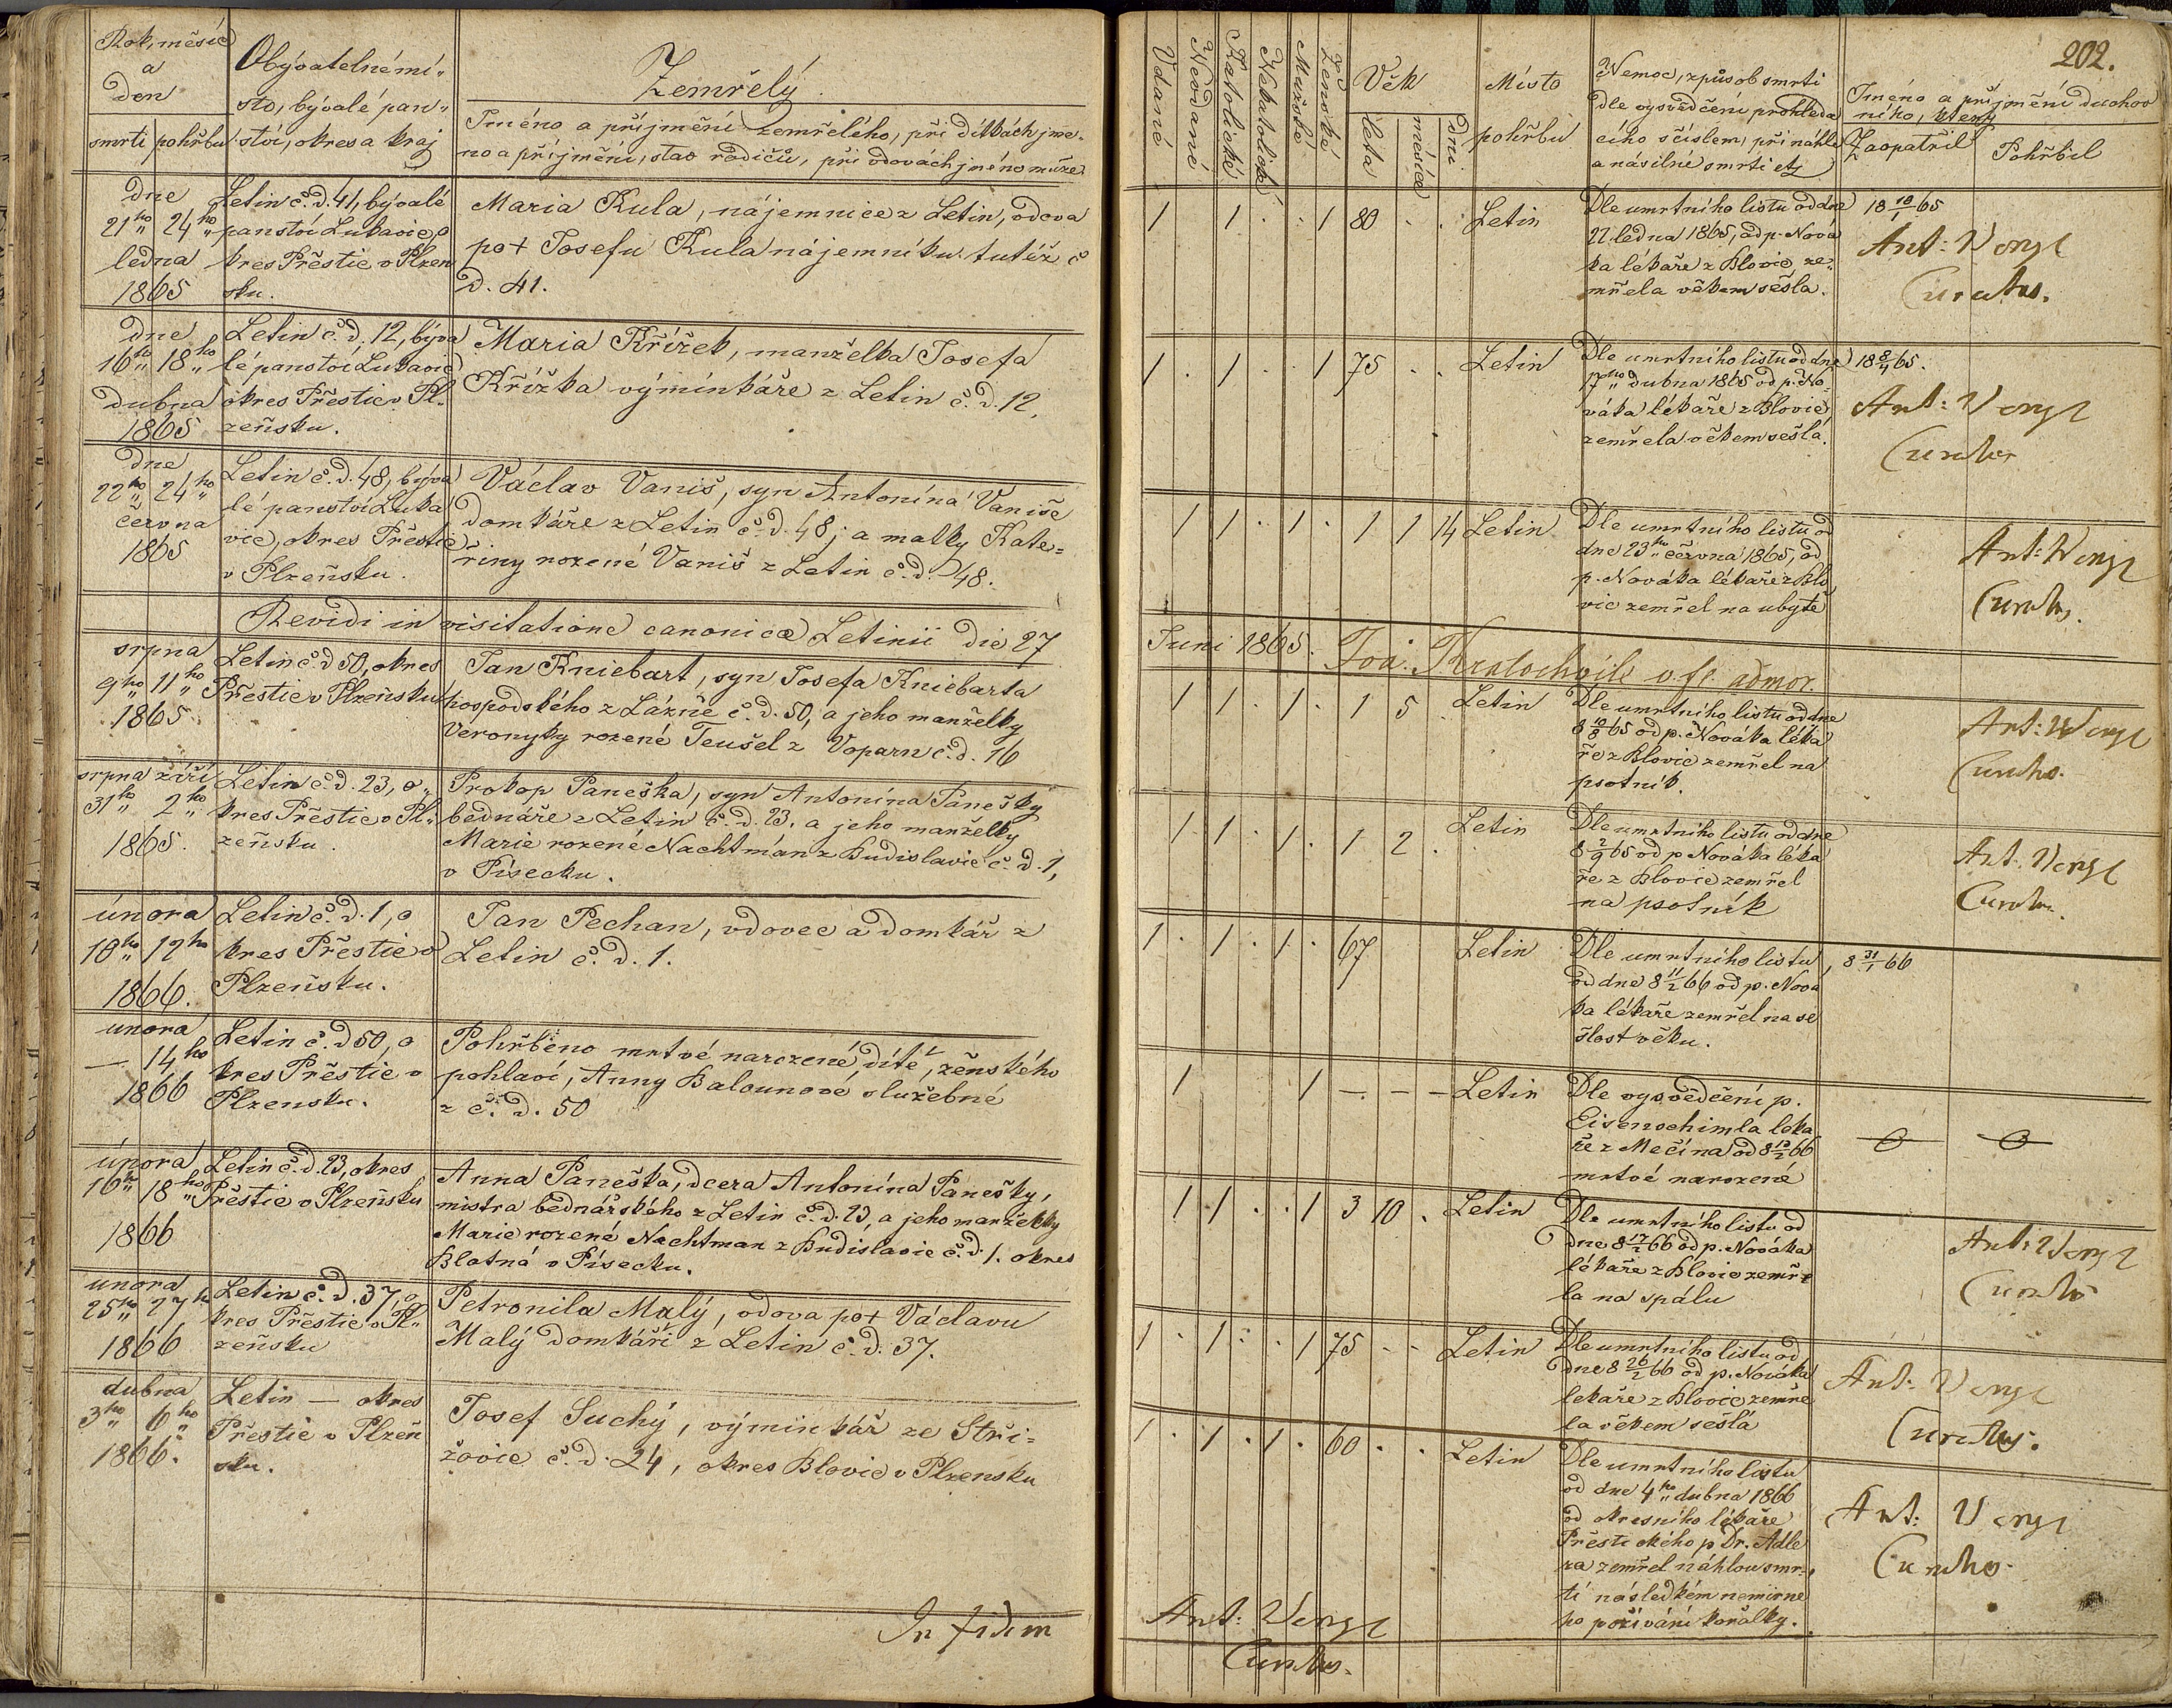 Rok, měsíc
a
den
smrti pohřbu
Obývatelné mí„
sto, bývalé pan„
ství, okres a kraj
Zemřelý.
Jméno a příjmění zemřelého, při dítkách jme-
no a příjmění, stav rodičů, při vdovách jméno muže.
dne
21ho 24ho
ledna
1865
Letin č. d. 41, bývalé
panství Lukavic, o
kres Přeštic v Plzeň
sku.
Maria Kula, nájemnice z Letin, vdova
po + Josefu Kula nájemníku tutéž č
d. 41.
dne
16ho 18ho
dubna
1865
Letin č. d. 12, býva
lé panství Lukavic
okres Přeštic v Pl.
zeňsku.
Maria Křížek, manželka Josefa
Křížka výminkáře z Letin č. d. 12.
dne
22ho 24ho
června
1865
Letin č. d. 48, býva
lé panství Luka
vic, okres Přeštic
v Plzeňsku.
Václav Vaniš, syn Antonína Vaniše
domkáře z Letin č. d. 48; a matky Kate=
řiny rozené Vaniš z Letin č. d. 48.
Revidi in visitatione canonica Letinii die 27
srpna
9ho 11ho
1865.
Letin č. d 50, okres
Přeštic v Plzeňsku
Jan Kniebart, syn Josefa Kniebarta
hospodského z Lázně č. d. 50, a jeho manželky
Veronyky rozené Teušel z Voparn č. d. 16
srpna září
31ho 2ho
1865.
Letin č. d. 23, o„
kres Přeštic v Pl„
zeňsku.
Prokop Paneška, syn Antonína Panešky
bednáře z Letin č. d. 23. a jeho manželky
Marie rozené Nachtman z Budislavic č. d. 1,
v Písecku.
února
10ho 12ho
1866.
Letin č. d. 1, o
kres Přeštic v
Plzeňsku.
Jan Pechan, vdovec a domkář z
Letin č. d. 1.
února
— 14ho
1866
Letin č. d 50, o
kres Přeštic v
Plzensku.
Pohřbeno mrtvé narozené dítě, ženského
pohlaví, Anny Balounové služebné
z č. d. 50
února
16ho 18ho
1866
Letin č. d. 23, okres
Přeštic v Plzeňsku
Anna Paneška, dcera Antonína Panešky,
mistra bednářského z Letin č. d. 23, a jeho manželky
Marie rozené Nachtman z Budislavic č. d. 1. okres
Blatná v Písecku.
února
25ho 27ho
1866
Letin č. d. 37, o
kres Přeštic v Pl„
zeňsku
Petronila Malý, vdova po + Václavu
Malý domkáři z Letin č. d. 37.
dubna
3ho 6ho
1866.
Letin — okres
Přeštic v Plzeň
sku.
Josef Suchý, výminkář ze Stři=
žovic č. d. 24, okres Blovic v Plzensku
In fidem
202.
Vdané
Nevdané
Katolické
Nekatolické
Mužské
Ženské
Věk
léta
měsíce
dni
Místo
pohřbu
Nemoc, způsob smrti
dle vysvědčení prohleda
cího s číslem, při náhlé
a násilné smrti etz
Jméno a příjmění duchov
ního, který
Zaopatřil
Pohřbil
1 1 . . 1 80 . . Letin
Dle umrtního listu od dne
22. ledna 1865, od p. Nová
ka lékaře z Blovic ze„
mřela věkem sešla.
18 18/1 65
Ant: Vengl
Curatus.
1 . 1 . . 1 75 . . Letin
Dle umrtního listu od dne
17ho dubna 1865 od p. No
váka lékaře z Blovic,
zemřela věkem sešla.
18 8/4 65.
Ant: Vengl
Curatus
1 1 . 1 . 1 1 14 Letin
Dle umrtního listu od
dne 23ho června 1865, od
p. Nováka lékaře z Blo
vic zemřel na ubytě
Ant: Vengl
Curatus.
Juni 1865. Joa. Kratochvile v. fr. admor.
1 1 . 1 . 1 5 . Letin
Dle umrtního listu od dne
8 10/8 65 od p. Nováka léka
ře z Blovic zemřel na
psotník.
Ant: Vengl
Curatus.
1 1 . 1 . 1 2 . Letin
Dle umrtního listu od dne
8 2/9 65 od p Nováka léka
ře z Blovic zemřel
na psotník
Ant. Vengl
Curatus.
1 . 1 . 1 . 67 Letin
Dle umrtního listu,
od dne 8 11/2 66 od p. Nová
ka lékaře zemřel na se
šlost věku.
8 31/1 66
1 1 — — — Letin
Dle vysvědčení p.
Eisenschimla léka
ře z Mečína od 8 13/2 66
mrtvé narozené
1 1 . . 1 3 10 . Letin
Dle umrtního listu od
dne 8 17/2 66 od p. Nováka
lékaře z Blovic zemře
la na spálu
Ant: Vengl
Curatus
1 . 1 . . 1 75 - - Letin
Dle umrtního listu od
dne 8 26/2 66 od p. Nováka
lekaře z Blovic zemře
la věkem sešlá
Ant: Vengl
Curatus.
1 . 1 . 1 . 60 . . Letin
Dle umrtního listu
od dne 4ho dubna 1866
od okresního lékaře
Přeštického p Dr. Adle
ra zemřel náhlou smr„
tí následkém nemirne
ho požívání kořalky.
Ant: Vengl
Curatus.
Ant: Vengl
Curatus.